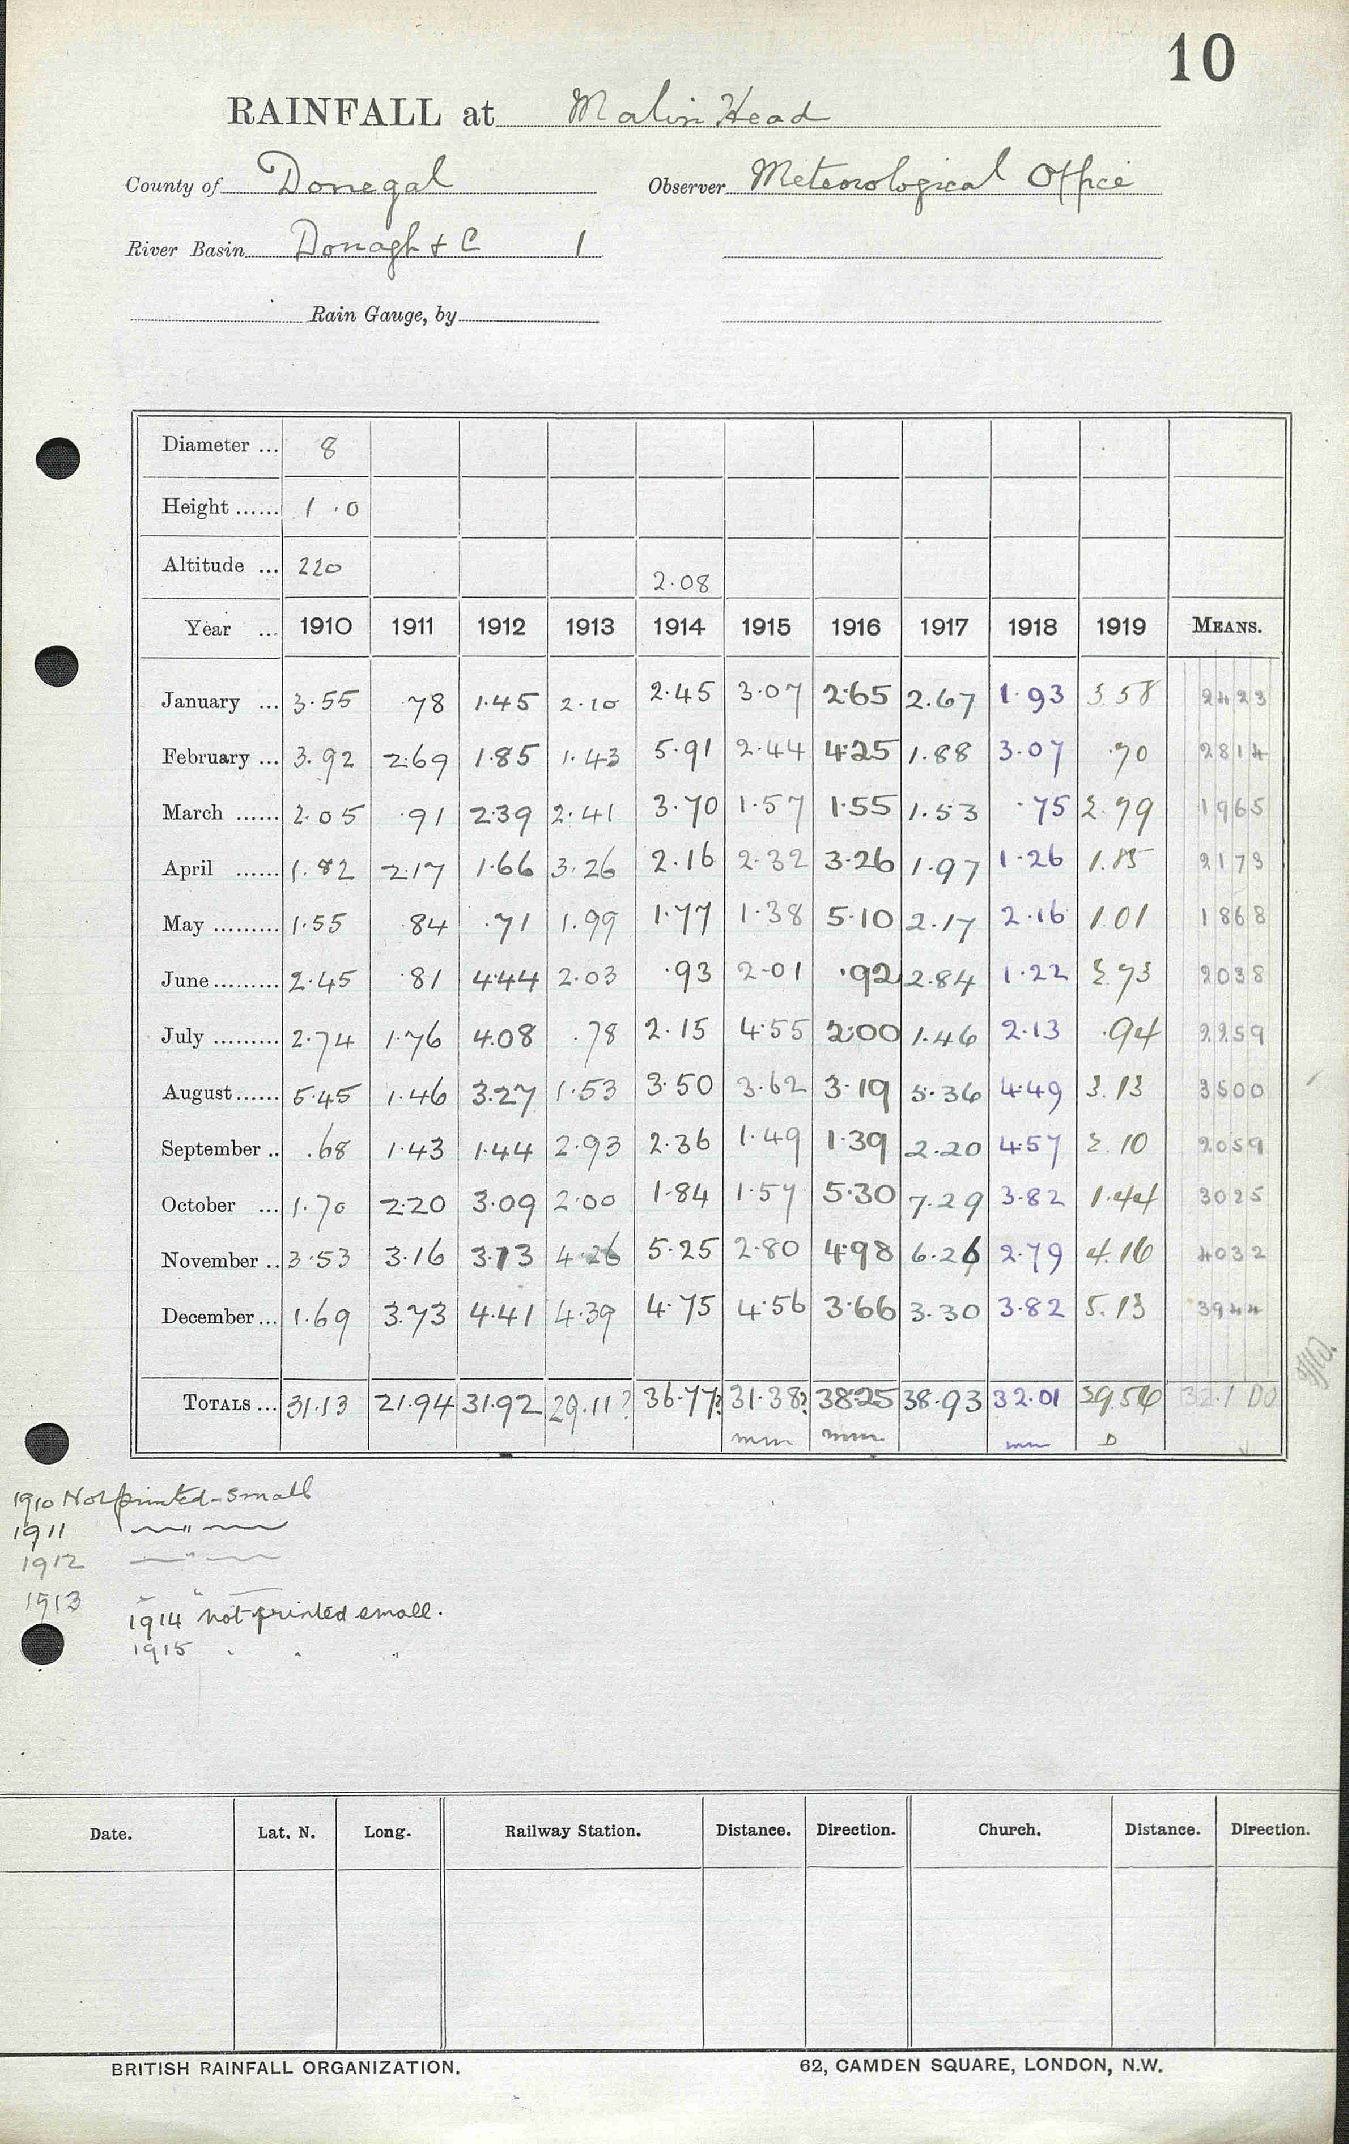 10
RAINFALL at Malin Head
County of Donegal Observer Meteorological Office
River Basin Donagh & C 1
Rain Gauge, by
Diameter ... 8
Height ...... 1.0
Altitude ... 220 2.08
Year ... 1910 1911 1912 1913 1914 1915 1916 1917 1918 1919 MEANS.
January ... 3.55 .78 1.45 2.10 2.45 3.07 2.65 2.67 1.93 3.58 2423
February ... 3.92 2.69 1.85 1.43 5.91 2.44 4.25 1.88 3.07 .70 2814
March ...... 2.05 .91 2.39 2.41 3.70 1.57 1.55 1.53 .75 2.79 1965
April ...... 1.82 2.17 1.66 3.26 2.16 2.32 3.26 1.97 1.26 1.85 2173
May ......... 1.55 .84 .71 1.99 1.77 1.38 5.10 2.17 2.16 1.01 1868
June ......... 2.45 .81 4.44 2.03 .93 2.01 .92 2.84 1.22 2.73 2038
July ......... 2.74 1.76 4.08 .78 2.15 4.55 2.00 1.46 2.13 .94 2259
August ...... 5.45 1.46 3.27 1.53 3.50 3.62 3.19 5.36 4.49 3.13 3500
September .. .68 1.43 1.44 2.93 2.36 1.49 1.39 2.20 4.57 2.10 2059
October ... 1.70 2.20 3.09 2.00 1.84 1.57 5.30 7.29 3.82 1.44 3025
November .. 3.53 3.16 3.13 4.26 5.25 2.80 4.98 6.26 2.79 4.16 4032
December ... 1.69 3.73 4.41 4.39 4.75 4.56 3.66 3.30 3.82 5.13 3944
TOTALS ... 31.13 21.94 31.92 29.11? 36.77? 31.38? 38.25 38.93 32.01 29.56 32.100
mm mm mm D
1910 Not printed - small
1911 " 
1912 "
1913 " "
1914 not printed small.
1915 " " "
Date. Lat. N. Long. Railway Station. Distance. Direction. Church. Distance. Direction.
BRITISH RAINFALL ORGANIZATION. 62, CAMDEN SQUARE, LONDON, N.W.